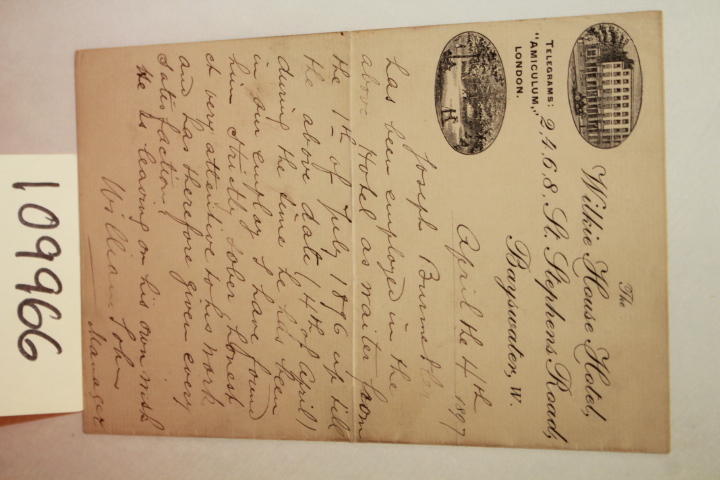 The
Wilkie House Hotel,
2, 4, 6, 8, St. Stephens Road,
Bayswater, W.
TELEGRAMS:
"AMICULUM,"
LONDON.
April the 4th 1897
Joseph Burmester
has been employed in the
above Hotel as waiter from
the 1th of July 1896 up till
the above date (4th of April)
during the time he has been
in our employ I have found
him strictly sober, honest
et very attentive to his work
and has therefore given every
satisfaction
He is leaving on his own wish
William John
Manager
109966